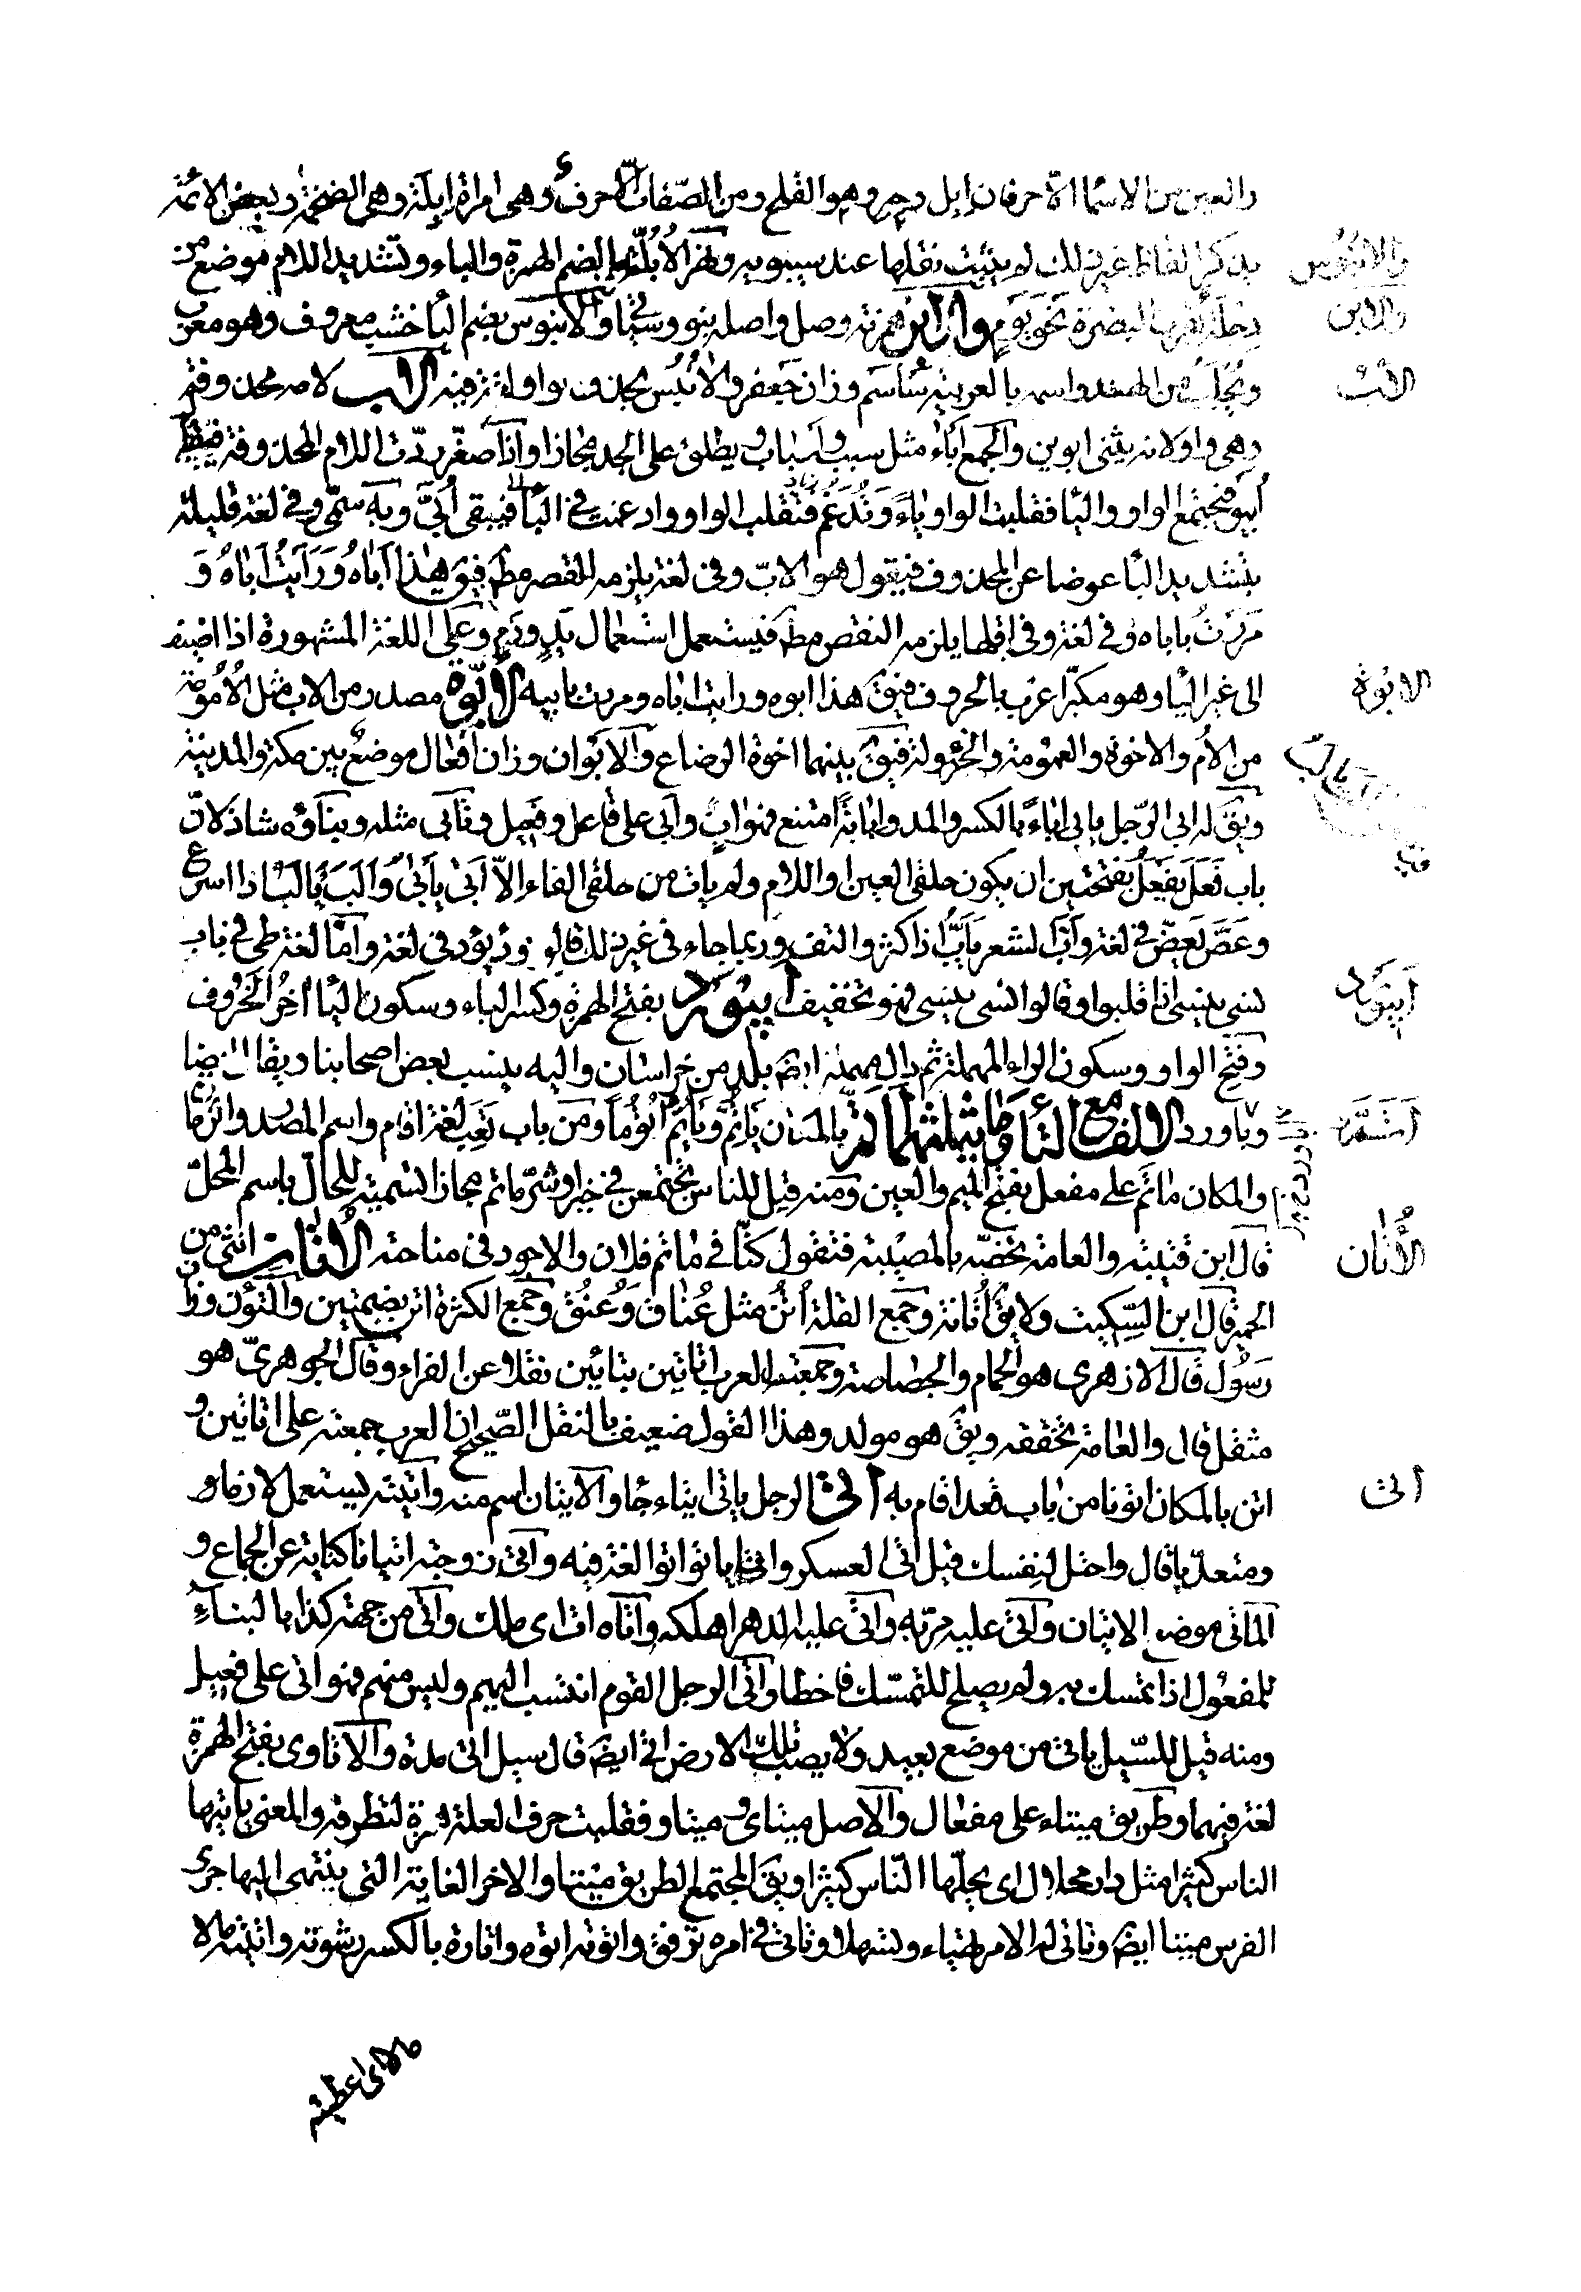 والعين من الاسماء الا حرفان ابل وحبر وهو القلح ومن الصفات الا حرف وهى امراة ابلة وهى الضخمة وبعض الائمة
يذكر الفاظا غير ذلك لم يثبت نقلها عند سيبويه ونهر الأُبُلَّة بالضم الهمزة والباء وتشديد اللام موضع من
دجلة بقرب البصرة نحو يوم وابن همزته وصل واصله بنو وسياتى والآبنوس بضم الباء خشب معروف وهو معرب
ويجلب من الهند واسمه بالعربية سَأسَم وزان جعفر والابنس بحذف واو لغة فيه الاب لامه محذوفة
وهى واو لانه يثنى ابوين والجمع آباء مثل سبب واسباب ويطلق على الجد مجازا واذا صغّر ردّت اللام المحذوفة فيبقى
أبيو فيجتمع الواو والياء فقلبت الواو ياءً وتُدغم فتقلب الواو وادغمت فى الياء فيبقى اُبَىّ وبه سمّى وفى لغة قليلة
بتشديد الباء عوضا عن المحذوف فيقول هو الابّ وفى لغة يلزمه القصر مط فيق هذا اَباهُ وَرَاَيتُ اَباهُ وَ
مَرَرتُ باباه وفى لغة وفى اقلها يلزمه النقص مط فيستعمل استعمال يدٍ ودمٍ وعلى اللغة المشهورة اذا اضيف
الى غير الياء وهو مكبّر اعرب بالحروف فيق هذا ابوه ورايت اباه ومررت بابيه الأبوّة مصدر من الاب مثل الأمومة
من الأم والاخوة والعمومة والخؤولة فيق بينهما اخوة الرضاع والابوان وزان افعال موضع بين مكة والمدينة
ويق له ابى الرّجل يابى اباءً بالكسر والمد واباية امتنع فهو ابٍ وآبى على فاعل وفعيل وتأبى مثله وبناؤه شاذ لانّ
باب فَعَلَ يفعَلُ بفتحتين ان يكون حلقى العين او اللام ولم يات من حلقى الفاء الاّ اَبى يأبى وَاَلَبَ يألب اذا اسرع
وعَضَّ يعَضّ فى لغة واَثّ الشعر يأثّ اذا كثر والتف وربما جاء فى غير ذلك قالوا ودّ يودّ فى لغة وامّا لغة طى فى باب
نسى ينسى اذا قلبوا وقالوا نسى ينسى فهو تخفيف ابيورد بفتح الهمزة وكسر الباء وسكون الياء آخر الحروف
وفتح الواو وسكون الراء المهملة ثم دال مهملة ايضً بلد من خراسان واليه ينسب بعض اصحابنا ويقال ايضا
وباورد الالف مع التاء وما يثلثهما اتم بالمكان يَاتِمُ ويَاتُم اُتُوماً ومن باب تَعِبَ لغة اقام واسم المصدر والزمان
والمكان مأتم على مفعل بفتح الميم والعين ومنه قيل للناس يجتمعون فى خير او شرّ ماتم مجازا تسمية للحال باسم المحلّ
قال ابن قتيبة والعامة تخصّه بالمصيبة فتقول كنّا فى ماتم فلان والاجود فى مناحته الاتان انثى من
الحمير قال ابن السّكيت ولا يق اتانة وجمع القلة أُتُن مثل عُناق وَعُنُق وجمع الكثرة اتن بضمتين والاتون وزان
رَسُول قال الازهرى هو للحمام والجصاصة وجمعته العرب اتاتين بتائين نقلا عن الفراء وقال الجوهرىّ هو
مثقل قال والعامة تخففه ويق هو مولد وهذا القول ضعيف بالنقل الصّحيح ان العرب جمعته على اتاتين و
اتن بالمكان اتونا من باب قعد اقام به اتى الرجل ياتى اتياء جاء والاتيان اسم منه واتيته يستعمل لازما و
ومتعدّيا قال واحتل لنفسك قبل اتى العسكر واتى ياتو اتوا لغة فيه واتى زوجته اتيانا كناية عن الجماع و
المأتى موضع الاتيان واتى عليه مرّ به واتى عليه الدهر اهلكه واتاه ات اى ملك واتى من جهة كذا بالبناء
للمفعول اذا تمسك به ولم يصلح للتمسّك فاخطا واتى الرجل القوم انتسب اليهم وليس منهم فهو اتى على فعيل
ومنه قيل للسّيل ياتى من موضع بعيد ولا يصب تلك الارض اتى ايضً قال سيل اتى مده والاتاوى بفتح الهمزة
لغة فيهما وطريق ميتاء على مفعال والاصل ميتاى وميتاو فقلبت حرف العلة همزة لتطرفه والمعنى ياتيها
الناس كثيرا مثل دار محلال اى يحلّها النّاس كثيرا ويق لمجتمع الطريق ميتا ولاخر الغاية التى ينتهى اليها جرى
الفرس ميتا ايضً وتاتى له الامر تهياء وتسهل وتاتى فى امره ترفق واتوته اتوه واتاوة بالكسر رشوته واتيته مالا
والابنوس
والابن
الاب
الابوة
ابيورد
الأتان
اتى